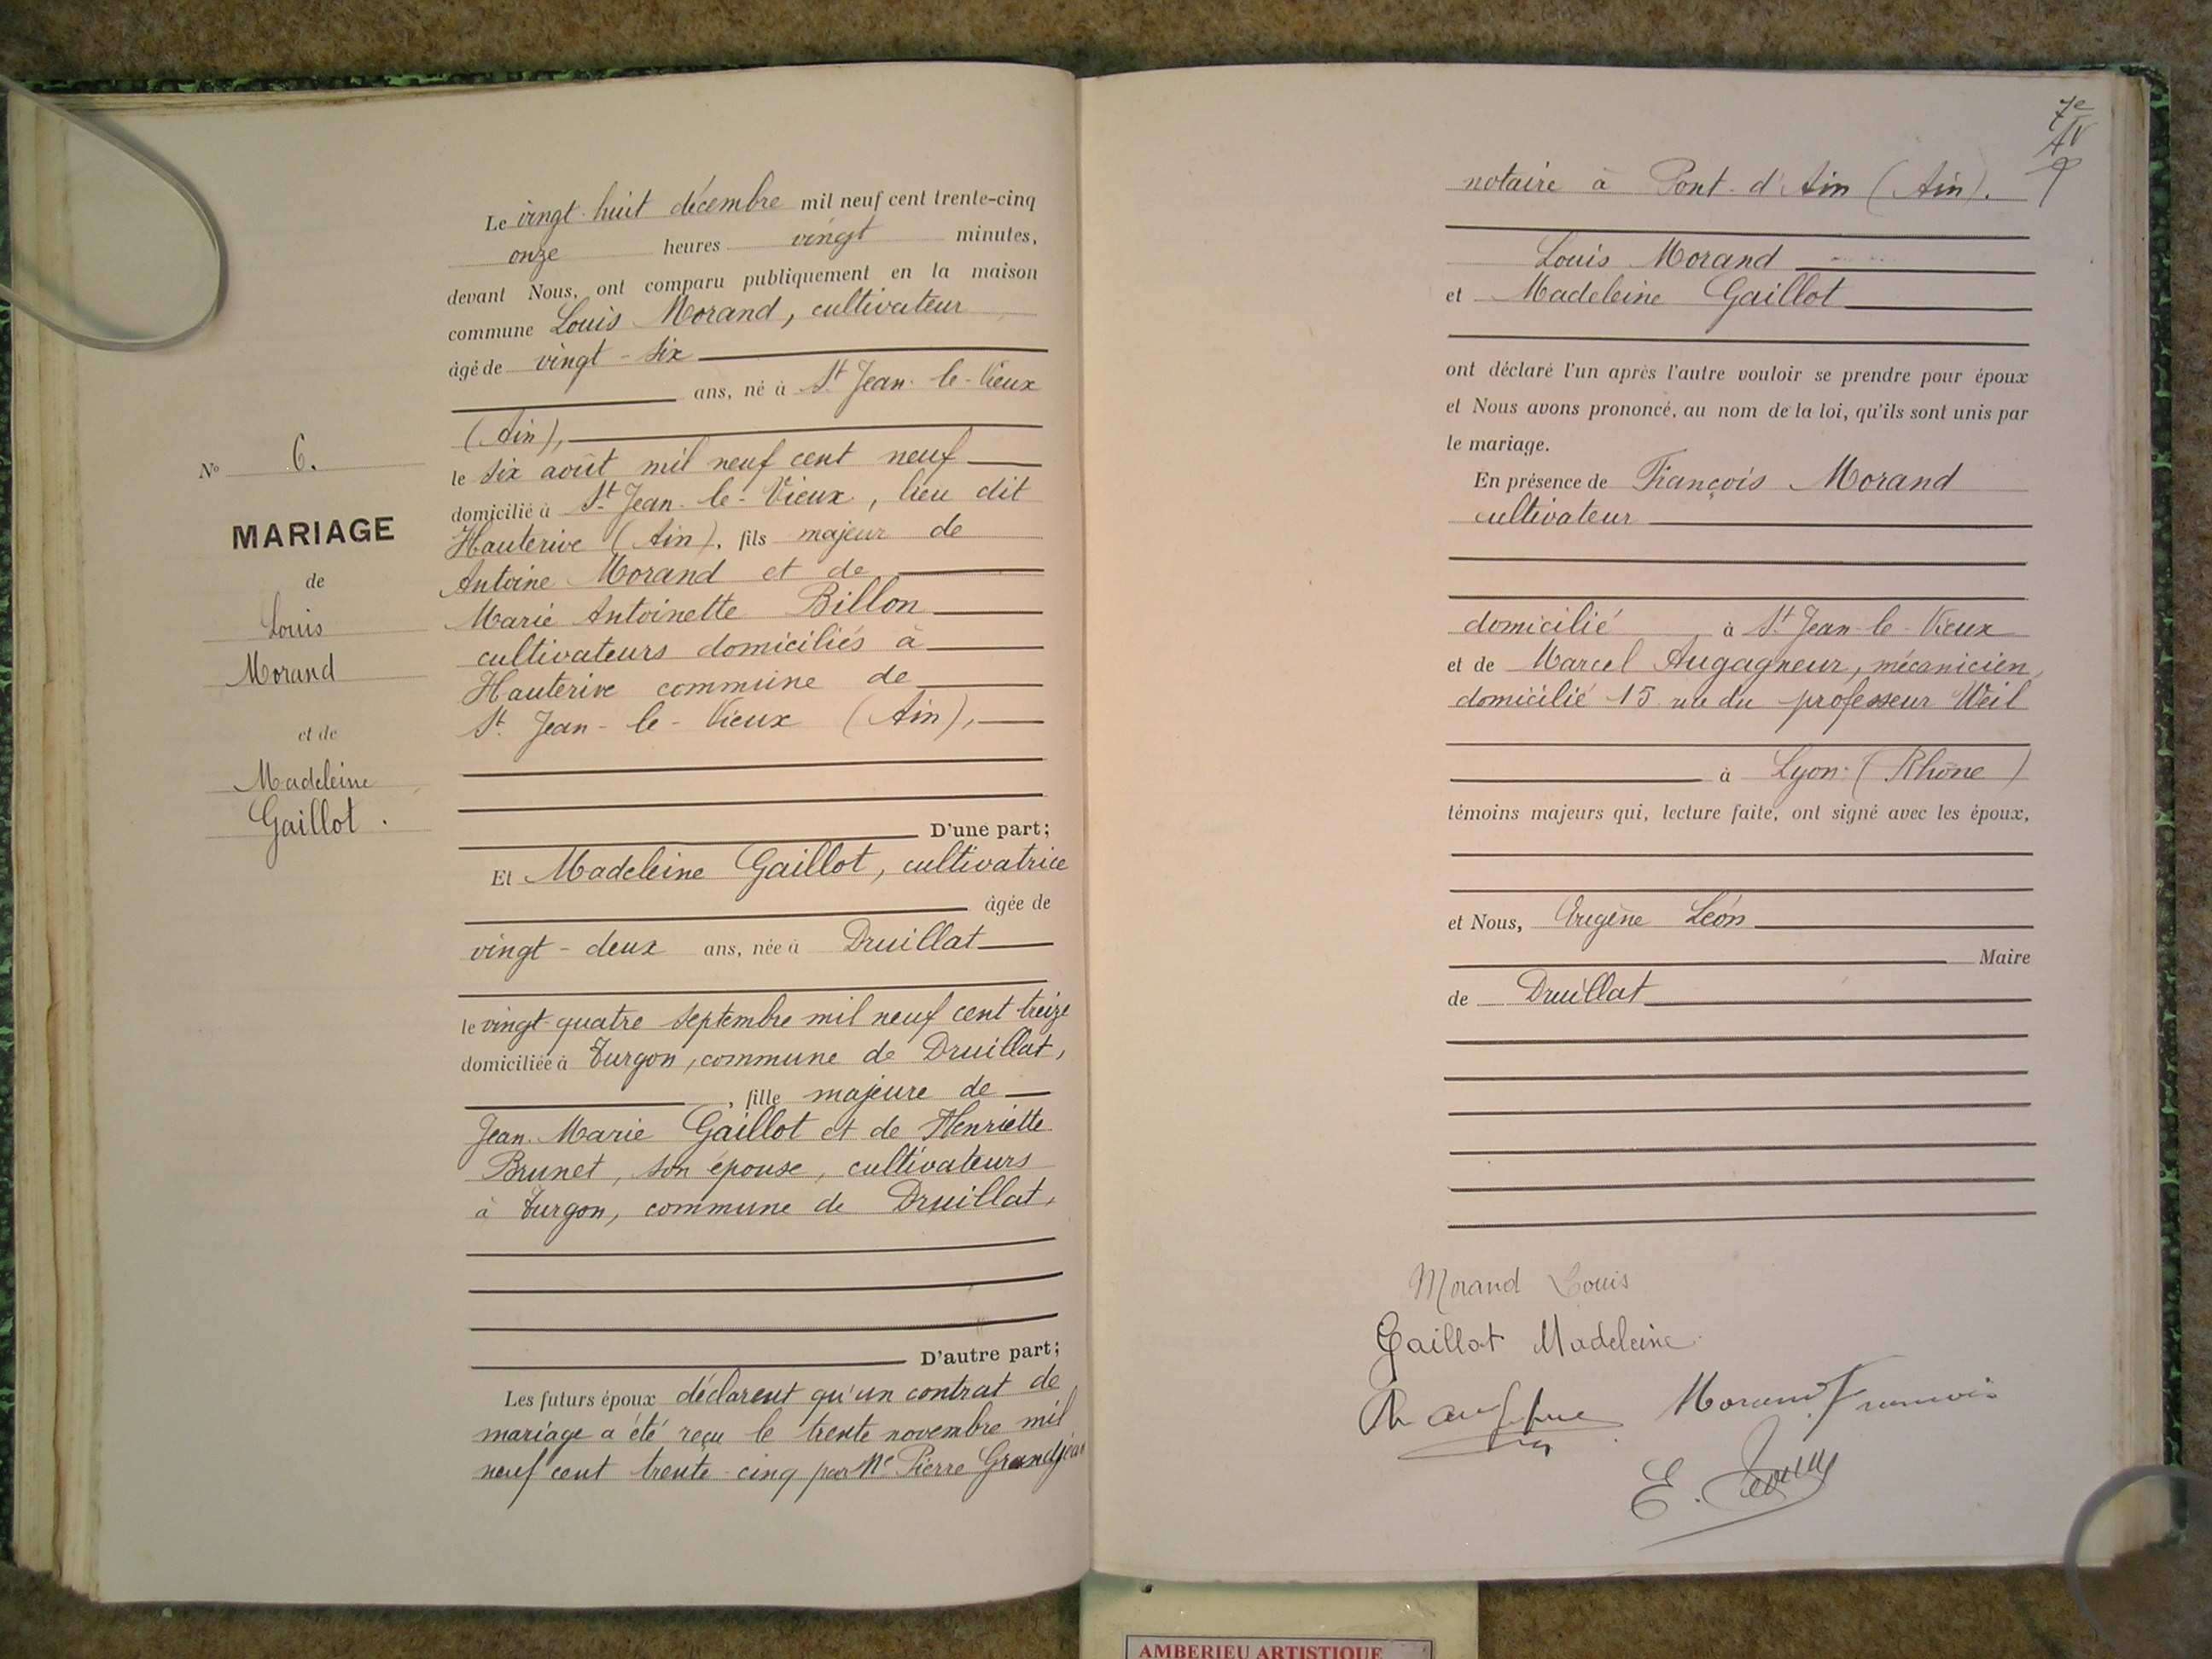 N° 6.
MARIAGE
de
Louis
Morand
et de
Madeleine
Gaillot.
Le vingt-huit décembre mil neuf cent trente-cinq
onze heures vingt minutes,
devant Nous, ont comparu publiquement en la maison
commune Louis Morand, cultivateur
âgé de vingt-six
ans, né à St Jean-le-Vieux
(Ain),
le six août mil neuf cent neuf
domicilié à St Jean-le-Vieux, lieu dit
Hauterive (Ain), fils majeur de
Antoine Morand et de
Marie Antoinette Billon
cultivateurs domiciliés à
Hauterive commune de
St Jean-le-Vieux (Ain),
D'une part;
Et Madeleine Gaillot, cultivatrice
âgée de
vingt-deux ans, née à Druillat
le vingt-quatre septembre mil neuf cent treize
domiciliée à Turgon, commune de Druillat,
, fille majeure de
Jean-Marie Gaillot et de Henriette
Brunet, son épouse, cultivateurs
à Turgon, commune de Druillat,
D'autre part;
Les futurs époux déclarent qu'un contrat de
mariage a été reçu le trente novembre mil
neuf cent trente-cinq par Me Pierre Grandjean
7e
notaire à Pont-d'Ain (Ain).
Louis Morand
et Madeleine Gaillot
ont déclaré l'un après l'autre vouloir se prendre pour époux
et Nous avons prononcé, au nom de la loi, qu'ils sont unis par
le mariage.
En présence de François Morand
cultivateur
domicilié à St Jean-le-Vieux
et de Marcel Augagneur, mécanicien,
domicilié 15 rue du professeur Weil
à Lyon (Rhône)
témoins majeurs qui, lecture faite, ont signé avec les époux,
et Nous, Eugène Léon
Maire
de Druillat
Morand Louis
Gaillot Madeleine
Morand François
E. Léon
AMBERIEU ARTISTIQUE